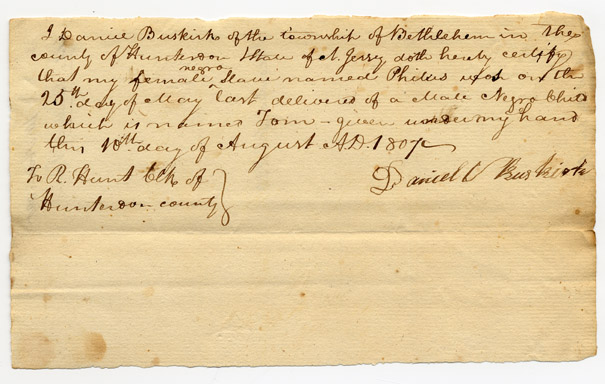 I Daniel Buskirk of the township of Bethlehem in the
county of Hunterdon State of N. Jersey doth hereby certify
negro
that my female ^ Slave named Philis was on the
25th day of May last delivered of a Male Negro Child
which is named Tom - given under my hand
this 10th day of August A.D. 1807
To R. Hunt Clk of
Daniel Buskirk
Hunterdon county